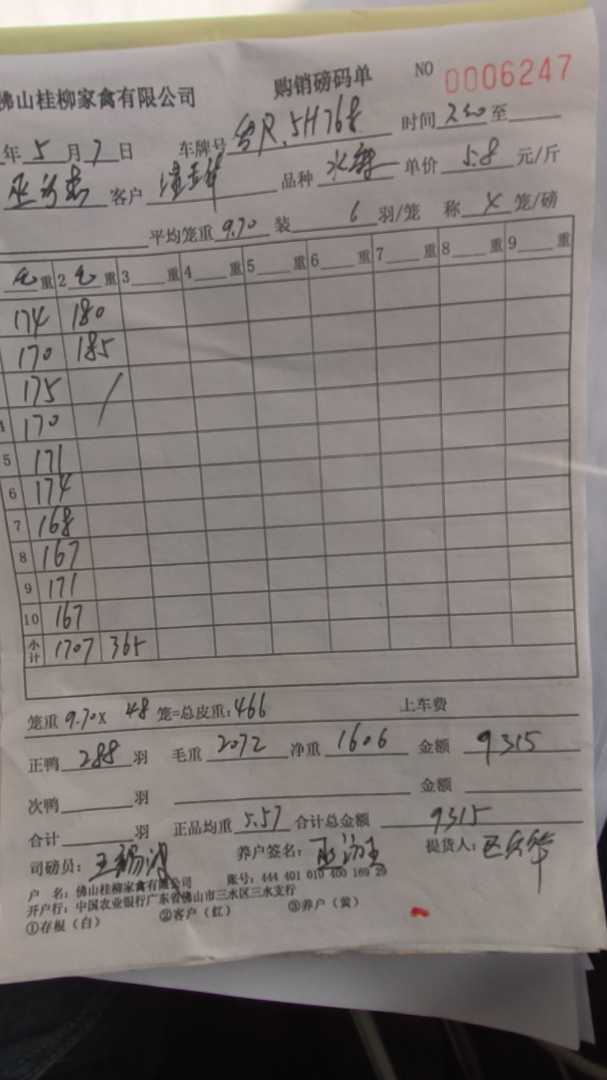 佛山桂柳家禽有限公司 购销磅码单 NO 0006247
年 5 月 7 日 车牌号 粤R.5H768 时间 至
客户 品种 水鸭 单价 5.8 元/斤
平均笼重 9.70 装 6 羽/笼 称 笼/磅
重 2 重 3 重 4 重 5 重 6 重 7 重 8 重 9 重
174 180
170 185
175 /
170
5 171
6 174
7 168
8 167
9 171
10 167
小计 1707 365
笼重 9.70 X 48 笼=总皮重: 466 上车费
正鸭 288 羽 毛重 2072 净重 1606 金额 9315
次鸭 羽 金额
合计 羽 正品均重 5.57 合计总金额 9315
司磅员: 养户签名: 提货人:
户 名: 佛山桂柳家禽有限公司 账号: 444 401 010 400 169 29
开户行: 中国农业银行广东省佛山市三水区三水支行
①存根（白） ②客户（红） ③养户（黄）